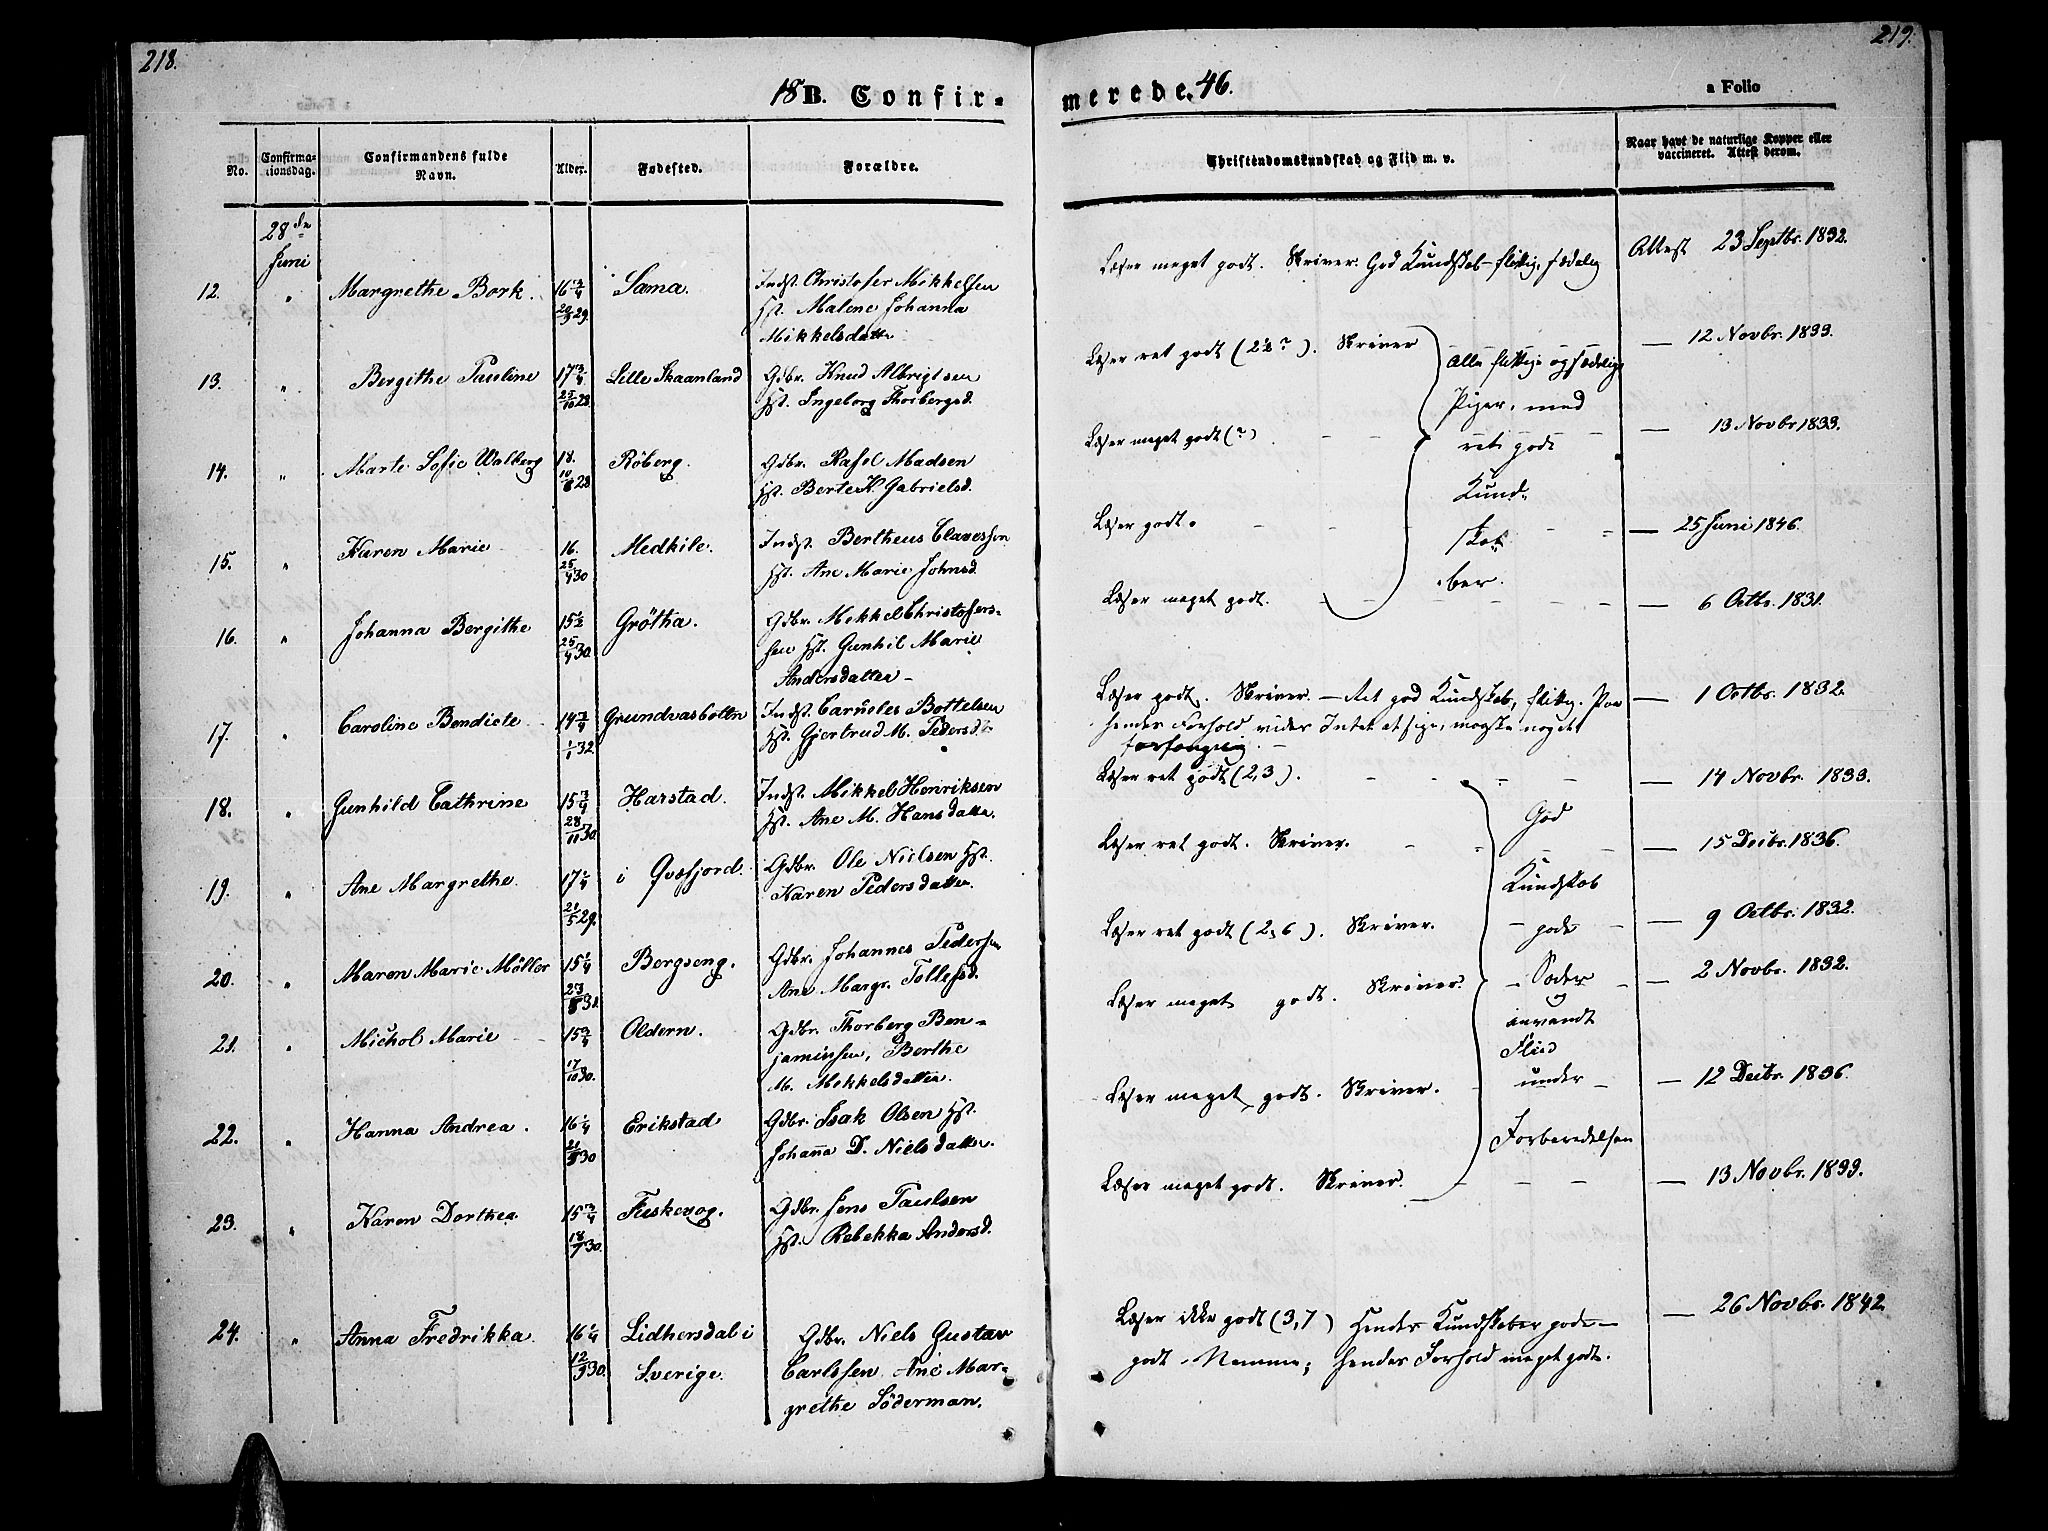 218.
219.
18 B. Confir-
merede. 46.
a Folio
No.
Confirma-
tionsdag.
Confirmandens fulde
Navn.
Alder.
Fødested.
Forældre.
Christendomskundskab og Flid m. v.
Naar havt de naturlige Kopper eller
vaccineret. Attest derom.
28de
Juni
12. " Margrethe Bork. 16 3/4 Sama. Indst. Christofer Mikkelsen
20/3 29. Hst. Malene Johanna
Mikkelsdatter
Læser meget godt. Skriver. God Kundskab - flittig, sædelig
Attest 23 Septbr. 1832.
13. " Bergithe Pauline 17 3/4 Lille Skaanland Gdbr. Knud Albrigtsen
25/10 28. Hst. Ingeborg Thorbergsd.
Læser ret godt (2 1/2 ?). Skriver
— 12 Novbr. 1833.
14. " Marte Sofie Walberg 18. Röberg. Gdbr. Rafel Madsen
10/6 28 Hst. Berte K. Gabrielsd.
Læser meget godt (?)
— 13 Novbr 1833.
15. " Karen Marie 16. Medkile. Indst. Bertheus Clavessen
25/4 30 Hst. Ane Marie Johnsd.
Læser godt.
— 25 Juni 1846.
16. " Johanna Bergithe 15 1/2 Grötha. Gdbr. Mikkel Christofers-
25/4 30. sen Hst. Gunhil Marie
Andersdatter -
Læser meget godt.
— 6 Octbr. 1831.
Alle flittige og sædelige
Piger, med
ret gode
Kund-
skab
ber.
17. " Caroline Bendicte 14 3/4 Grundvasbottn Indst. Carneles Bottelsen
1/1 32. Hst. Gjertrud M. Pedersd
Læser godt. Skriver. - Ret god Kundskab, flittig. Paa
hendes Forhold vides Intet at sige, maaske noget
forfængelig -
— 1 Octbr. 1832.
18. " Gunhild Cathrine 15 3/4 Harstad. Indst. Mikkel Henriksen
28/11 30. Hst. Ane M. Hansdatter.
Læser ret godt (2,3).
— 14 Novbr. 1833.
19. " Ane Margrethe. 17 1/4 i Qvæfjord. Gdbr. Ole Nielsen Hst.
21/5 29. Karen Pedersdatter.
Læser ret godt. Skriver.
— 15 Decbr. 1836.
20. " Maren Marie Möller 15 1/4 Bergseng. Gdbr. Johannes Pedersen
23/5 31. Ane Margr. Tollefsd.
Læser ret godt (2,6). Skriver.
— 9 Octbr. 1832.
21. " Michol Marie 15 3/4 Oldern. Gdbr. Thorberg Ben-
17/10 30. jaminsen, Berthe
M. Mikkelsdatter.
Læser meget godt. Skriver.
— 2 Novbr. 1832.
22. " Hanna Andrea. 16 1/4 Erikstad Gdbr. Isak Olsen Hst.
21/3 30 Johanna D. Nielsdatter.
Læser meget godt. Skriver.
— 12 Decbr. 1836.
23. " Karen Dorthea. 15 3/4 Fuskevog. Gdbr. Jens Paulsen
18/9 30. Hst. Rebekka Andersd.
Læser meget godt. Skriver.
— 13 Novbr. 1833.
God
Kundskab
gode
Sæder
og
anvendt
Fliid
under
Forberedelsen
24. " Anna Fredrikka. 16 1/4 Lidhersdal i Gdbr. Niels Gustav
12/3 30. Sverige. Carlssen. Ane Mar-
grethe Söderman.
Læser ikke godt (3,7) Hendes Kundskaber gode -
godt Nemme; hendes Forhold meget godt.
— 26 Novbr. 1842.